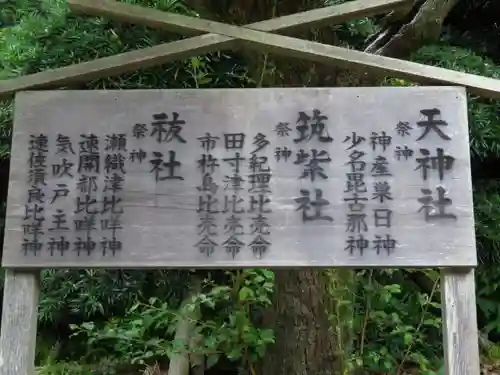 天神社
祭神
神産巣日神
少名毘古那神
筑紫社
祭神
多紀理比売命
田寸津比売命
市杵島比売命
祓社
祭神
瀬織津比咩神
速開都比咩神
氣吹戸主神
速佐須良比咩神